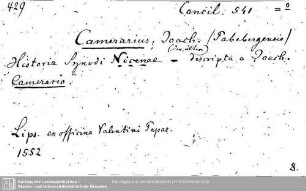 429 Concil. 541 = 8
Camerarius, Joach. (Pabebergensis)
Historia Synodi Nicenae - descripta a Joach.
Camerario.
Lips. ex officina Valentini Papae.
1552
8.
Sächsische Landesbibliothek -
Staats- und Universitätsbibliothek Dresden